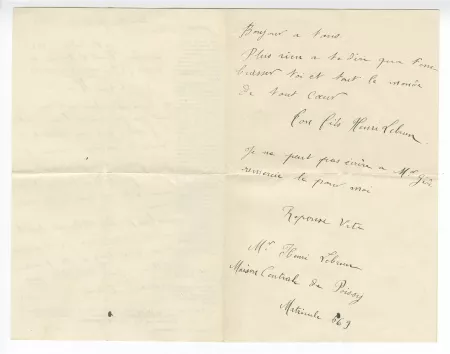 Bonjour a tous
Plus rien a te dire qua t'em
brasser toi et tout le monde
de tout cœur
Ton fils Henri Lebrun.
Je ne peut pas écrire a Mr
remercie le pour moi
Reponse Vite
Mr Henri Lebrun
Maison Centrale de Poissy
Matricule 669